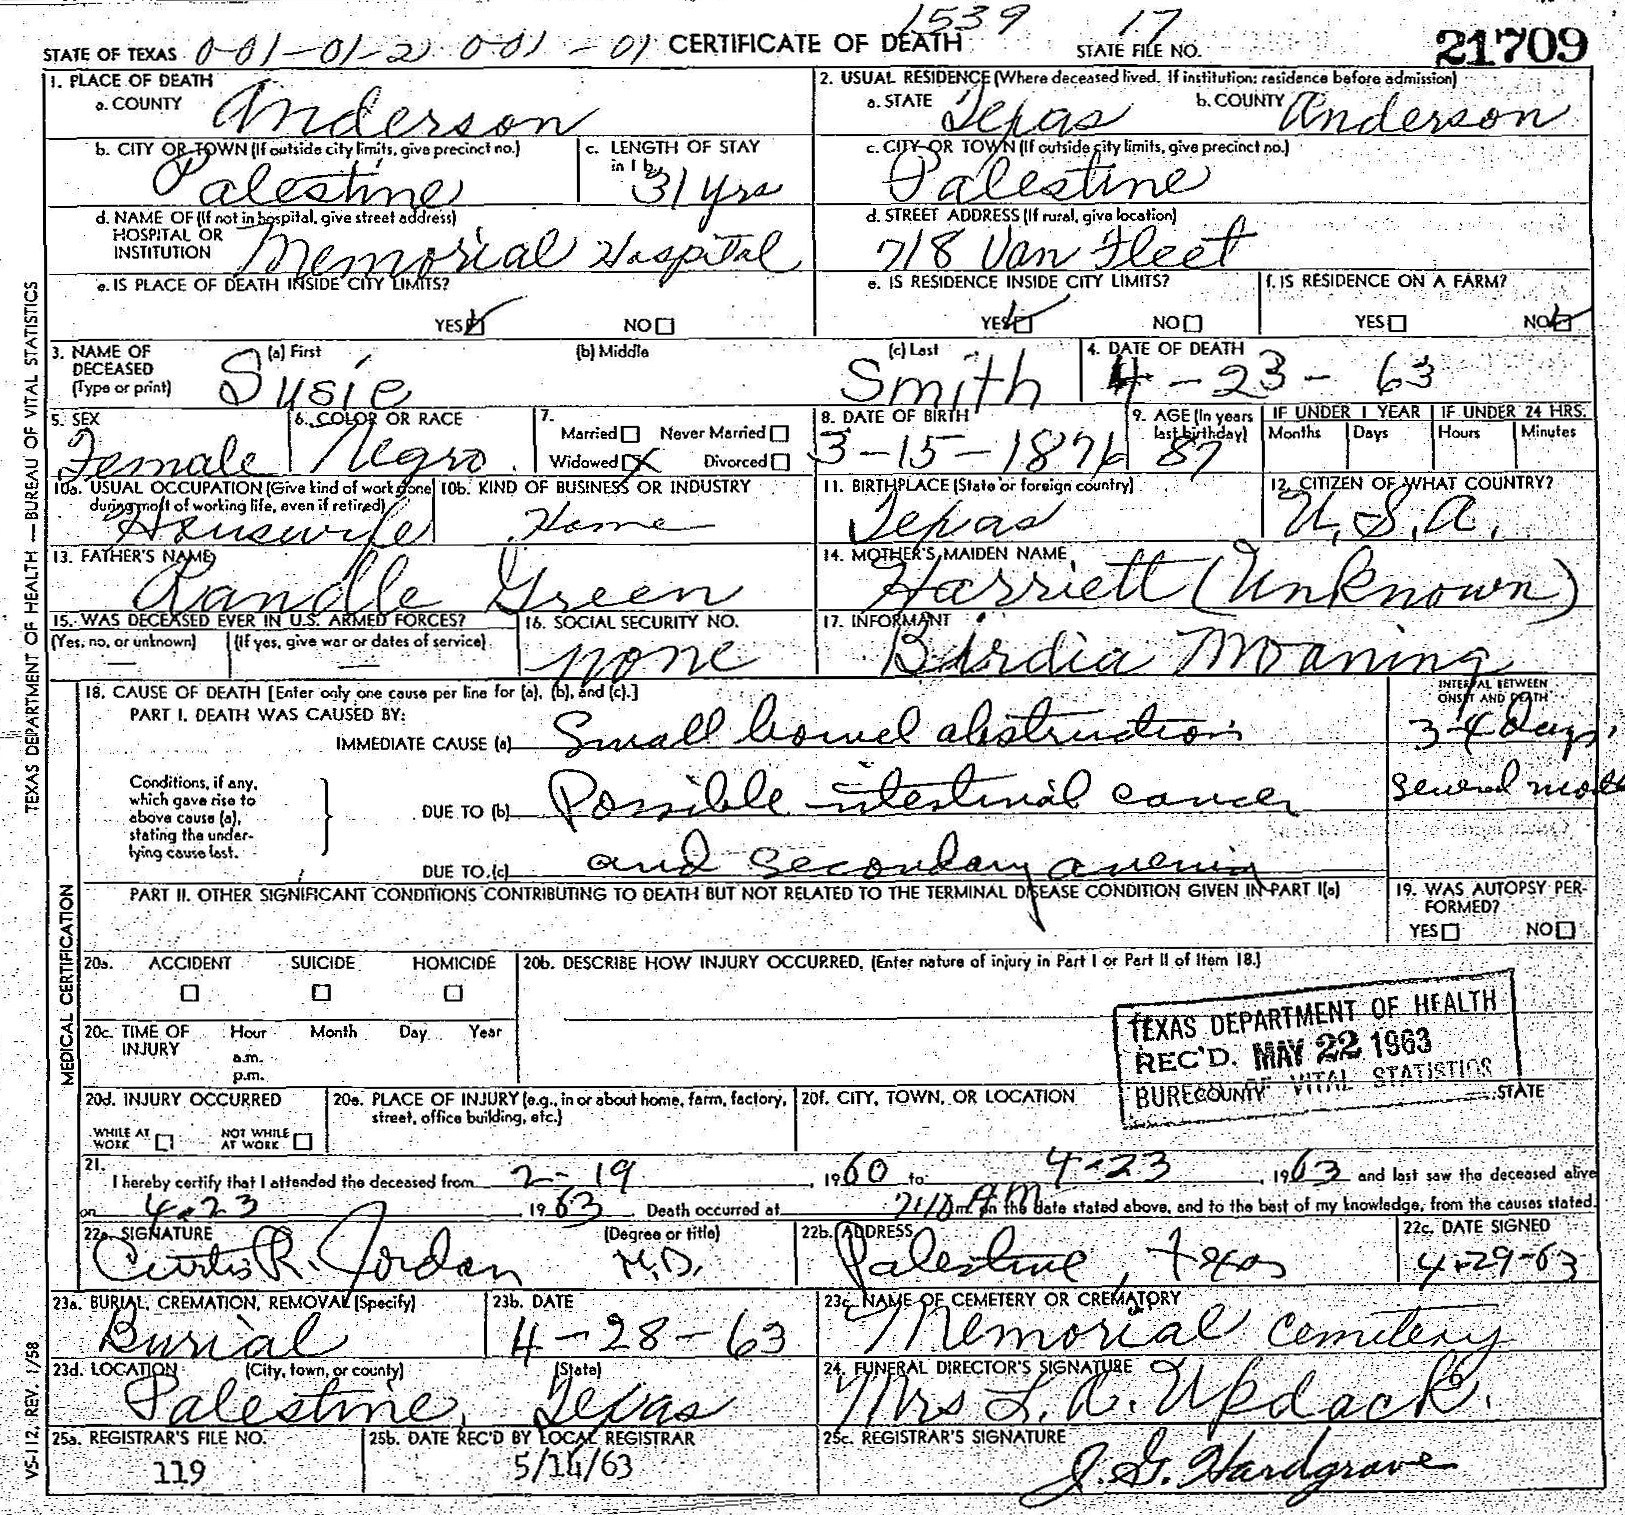 1539 17
STATE OF TEXAS 0-01-01-2 0-01-01 CERTIFICATE OF DEATH STATE FILE NO. 21709
1. PLACE OF DEATH
a. COUNTY Anderson
2. USUAL RESIDENCE (Where deceased lived. If institution: residence before admission)
a. STATE Texas b. COUNTY Anderson
b. CITY OR TOWN (If outside city limits, give precinct no.) Palestine
c. LENGTH OF STAY in 1 b. 31 yrs
c. CITY OR TOWN (If outside city limits, give precinct no.) Palestine
d. NAME OF (If not in hospital, give street address)
HOSPITAL OR
INSTITUTION Memorial Hospital
d. STREET ADDRESS (If rural, give location)
718 Van Fleet
e. IS PLACE OF DEATH INSIDE CITY LIMITS?
YES NO
e. IS RESIDENCE INSIDE CITY LIMITS?
YES NO
f. IS RESIDENCE ON A FARM?
YES NO
3. NAME OF DECEASED (Type or print)
(a) First Susie (b) Middle (c) Last Smith
4. DATE OF DEATH 4-23-63
5. SEX Female
6. COLOR OR RACE Negro
7. Married Never Married
Widowed Divorced
8. DATE OF BIRTH 3-15-1876
9. AGE (In years last birthday) 87
IF UNDER 1 YEAR Months Days
IF UNDER 24 HRS. Hours Minutes
10a. USUAL OCCUPATION (Give kind of work done during most of working life, even if retired) Housewife
10b. KIND OF BUSINESS OR INDUSTRY Home
11. BIRTHPLACE (State or foreign country) Texas
12. CITIZEN OF WHAT COUNTRY? U.S.A.
13. FATHER'S NAME Randle Green
14. MOTHER'S MAIDEN NAME Harriett (Unknown)
15. WAS DECEASED EVER IN U.S. ARMED FORCES?
(Yes, no, or unknown) — (If yes, give war or dates of service) —
16. SOCIAL SECURITY NO. none
17. INFORMANT Birdia Moaning
MEDICAL CERTIFICATION
18. CAUSE OF DEATH [Enter only one cause per line for (a), (b), and (c).]
INTERVAL BETWEEN ONSET AND DEATH
PART I. DEATH WAS CAUSED BY:
IMMEDIATE CAUSE (a) Small bowel obstruction 3-4 days
Conditions, if any, which gave rise to above cause (a), stating the underlying cause last.
DUE TO (b) Possible intestinal cancer several
DUE TO (c) and secondary anemia
PART II. OTHER SIGNIFICANT CONDITIONS CONTRIBUTING TO DEATH BUT NOT RELATED TO THE TERMINAL DISEASE CONDITION GIVEN IN PART I(a)
19. WAS AUTOPSY PERFORMED?
YES NO
20a. ACCIDENT SUICIDE HOMICIDE
20b. DESCRIBE HOW INJURY OCCURRED. (Enter nature of injury in Part I or Part II of Item 18.)
20c. TIME OF INJURY Hour Month Day Year
a.m.
p.m.
TEXAS DEPARTMENT OF HEALTH
REC'D. MAY 22 1963
BUREAU OF VITAL STATISTICS
20d. INJURY OCCURRED
WHILE AT WORK NOT WHILE AT WORK
20e. PLACE OF INJURY (e.g., in or about home, farm, factory, street, office building, etc.)
20f. CITY, TOWN, OR LOCATION COUNTY STATE
21. I hereby certify that I attended the deceased from 2-19, 1960 to 4-23, 1963 and last saw the deceased alive
on 4-23 1963. Death occurred at AM m. on the date stated above, and to the best of my knowledge, from the causes stated.
22a. SIGNATURE (Degree or title) Curtis R. Jordan M.D.
22b. ADDRESS Palestine, Texas
22c. DATE SIGNED 4-29-63
23a. BURIAL, CREMATION, REMOVAL (Specify) Burial
23b. DATE 4-28-63
23c. NAME OF CEMETERY OR CREMATORY Memorial Cemetery
23d. LOCATION (City, town, or county) (State) Palestine, Texas
24. FUNERAL DIRECTOR'S SIGNATURE Mrs L. A. Updack.
25a. REGISTRAR'S FILE NO. 119
25b. DATE REC'D BY LOCAL REGISTRAR 5/14/63
25c. REGISTRAR'S SIGNATURE J. G. Hardgrave
TEXAS DEPARTMENT OF HEALTH — BUREAU OF VITAL STATISTICS
VS-112, REV. 1/58